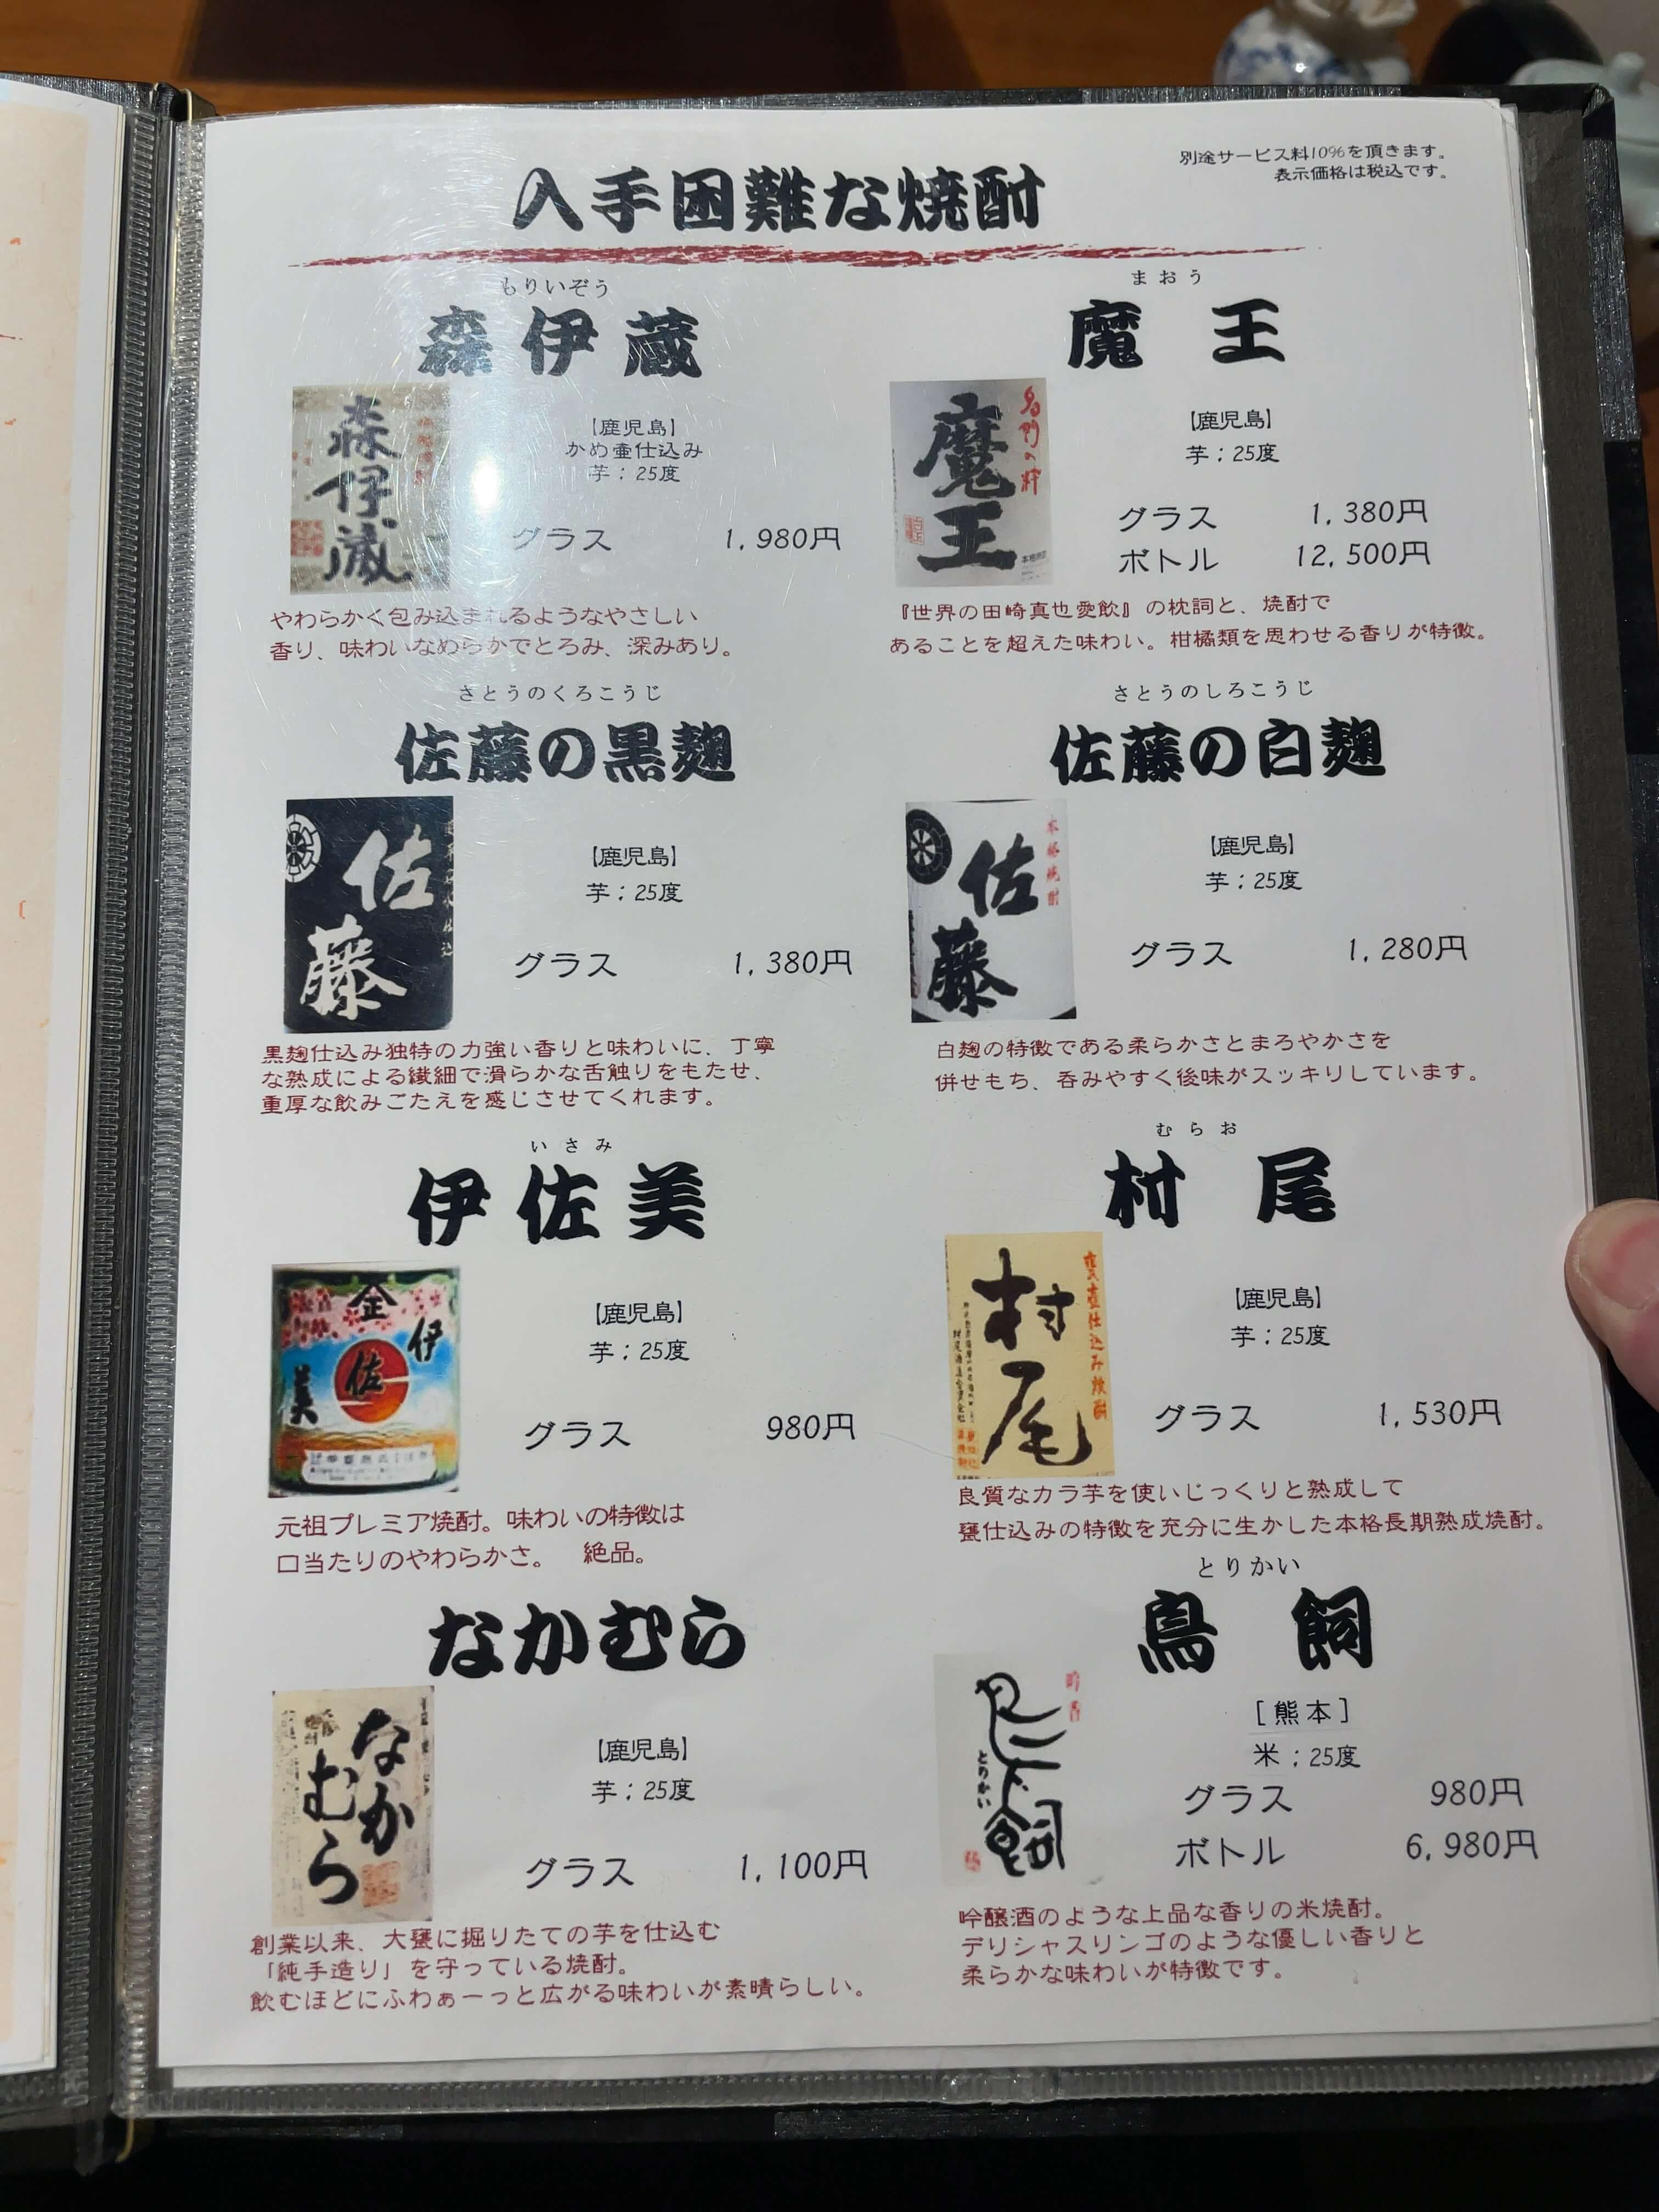 入手困難な焼酎
別途サービス料10%を頂きます。
表示価格は税込です。
もりいぞう
森伊蔵
森伊蔵
【鹿児島】
かめ壷仕込み
芋：25度
グラス 1,980円
やわらかく包み込まれるようなやさしい
香り、味わいなめらかでとろみ、深みあり。
まおう
魔王
名門の粋
魔王
【鹿児島】
芋：25度
グラス 1,380円
ボトル 12,500円
『世界の田崎真也愛飲』の枕詞と、焼酎で
あることを超えた味わい。柑橘類を思わせる香りが特徴。
さとうのくろこうじ
佐藤の黒麹
佐藤
【鹿児島】
芋：25度
グラス 1,380円
黒麹仕込み独特の力強い香りと味わいに、丁寧
な熟成による繊細で滑らかな舌触りをもたせ、
重厚な飲みごたえを感じさせてくれます。
さとうのしろこうじ
佐藤の白麹
本格焼酎
佐藤
【鹿児島】
芋：25度
グラス 1,280円
白麹の特徴である柔らかさとまろやかさを
併せもち、呑みやすく後味がスッキリしています。
いさみ
伊佐美
伊佐美
【鹿児島】
芋：25度
グラス 980円
元祖プレミア焼酎。味わいの特徴は
口当たりのやわらかさ。 絶品。
むらお
村尾
甕壺仕込み焼酎
村尾
【鹿児島】
芋：25度
グラス 1,530円
良質なカラ芋を使いじっくりと熟成して
甕仕込みの特徴を充分に生かした本格長期熟成焼酎。
なかむら
なかむら
【鹿児島】
芋：25度
グラス 1,100円
創業以来、大甕に掘りたての芋を仕込む
「純手造り」を守っている焼酎。
飲むほどにふわぁーっと広がる味わいが素晴らしい。
とりかい
鳥飼
吟香
鳥飼
とりかい
[熊本]
米：25度
グラス 980円
ボトル 6,980円
吟醸酒のような上品な香りの米焼酎。
デリシャスリンゴのような優しい香りと
柔らかな味わいが特徴です。